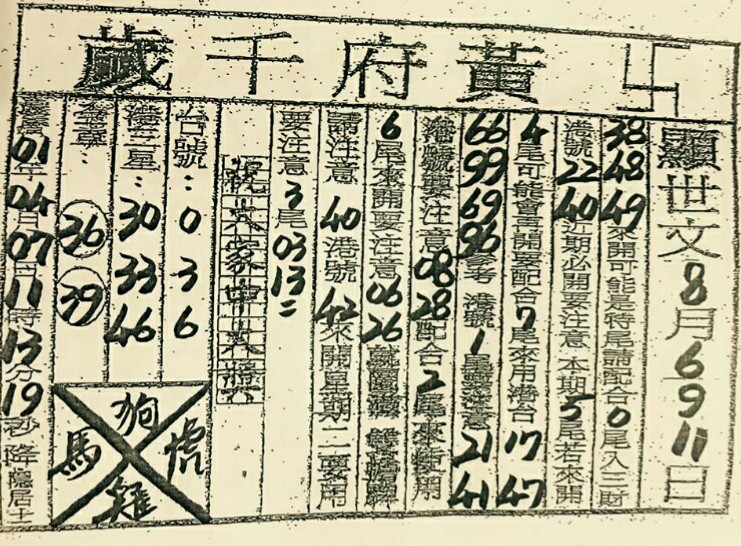 黃府千歲
顯世文8月6 9 11日
38 48 49來開可能是特尾請配合0尾入三財
港號22 40近期必開要注意本期5尾若來開
4尾可能會再開要配合7尾來用港台17 47
66 99 69 96參考 港號1尾要注意21 41
港號要注意08 28配合2尾來使用
6尾來開要注意06 26
需注意40港號42來開星期二要用
要注意3尾03 13二
祝大家中大獎
台號:0 3 6
港三星:30 33 46
36 39
01年04月07日11時13分19秒降隱居士
狗
馬 虎
雞